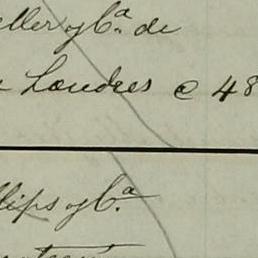 eller y Cª. de
Londres @ 48
llips y Cª.